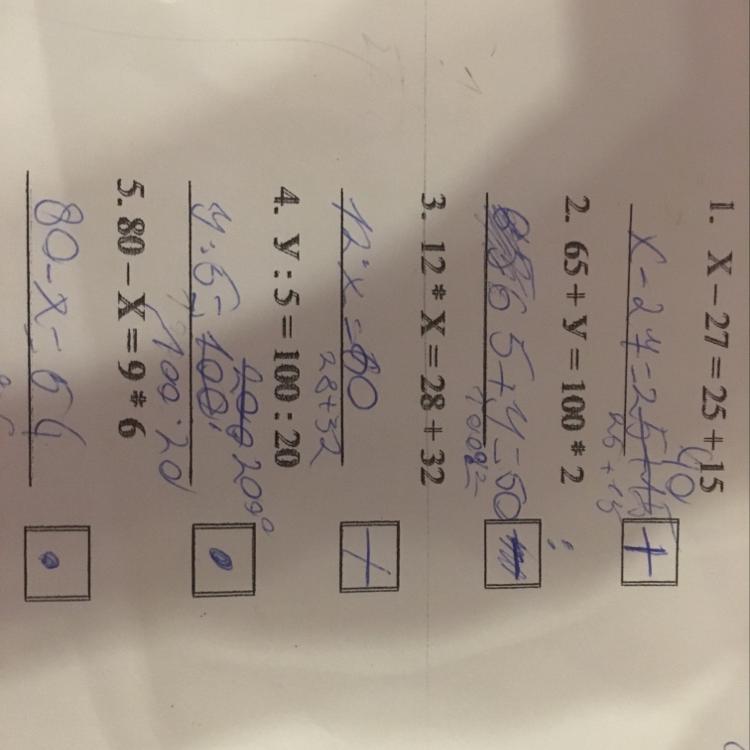 1. X – 27 = 25 + 15
x - 27 = 25+15 40
25 + 15
+
2. 65 + y = 100 * 2
65 + y = 50
100
3. 12 * X = 28 + 32
12 · x = 60
28 + 32
+
4. y : 5 = 100 : 20
y : 5 = 100
100 · 20
•
5. 80 – X = 9 * 6
80 - x = 54
•